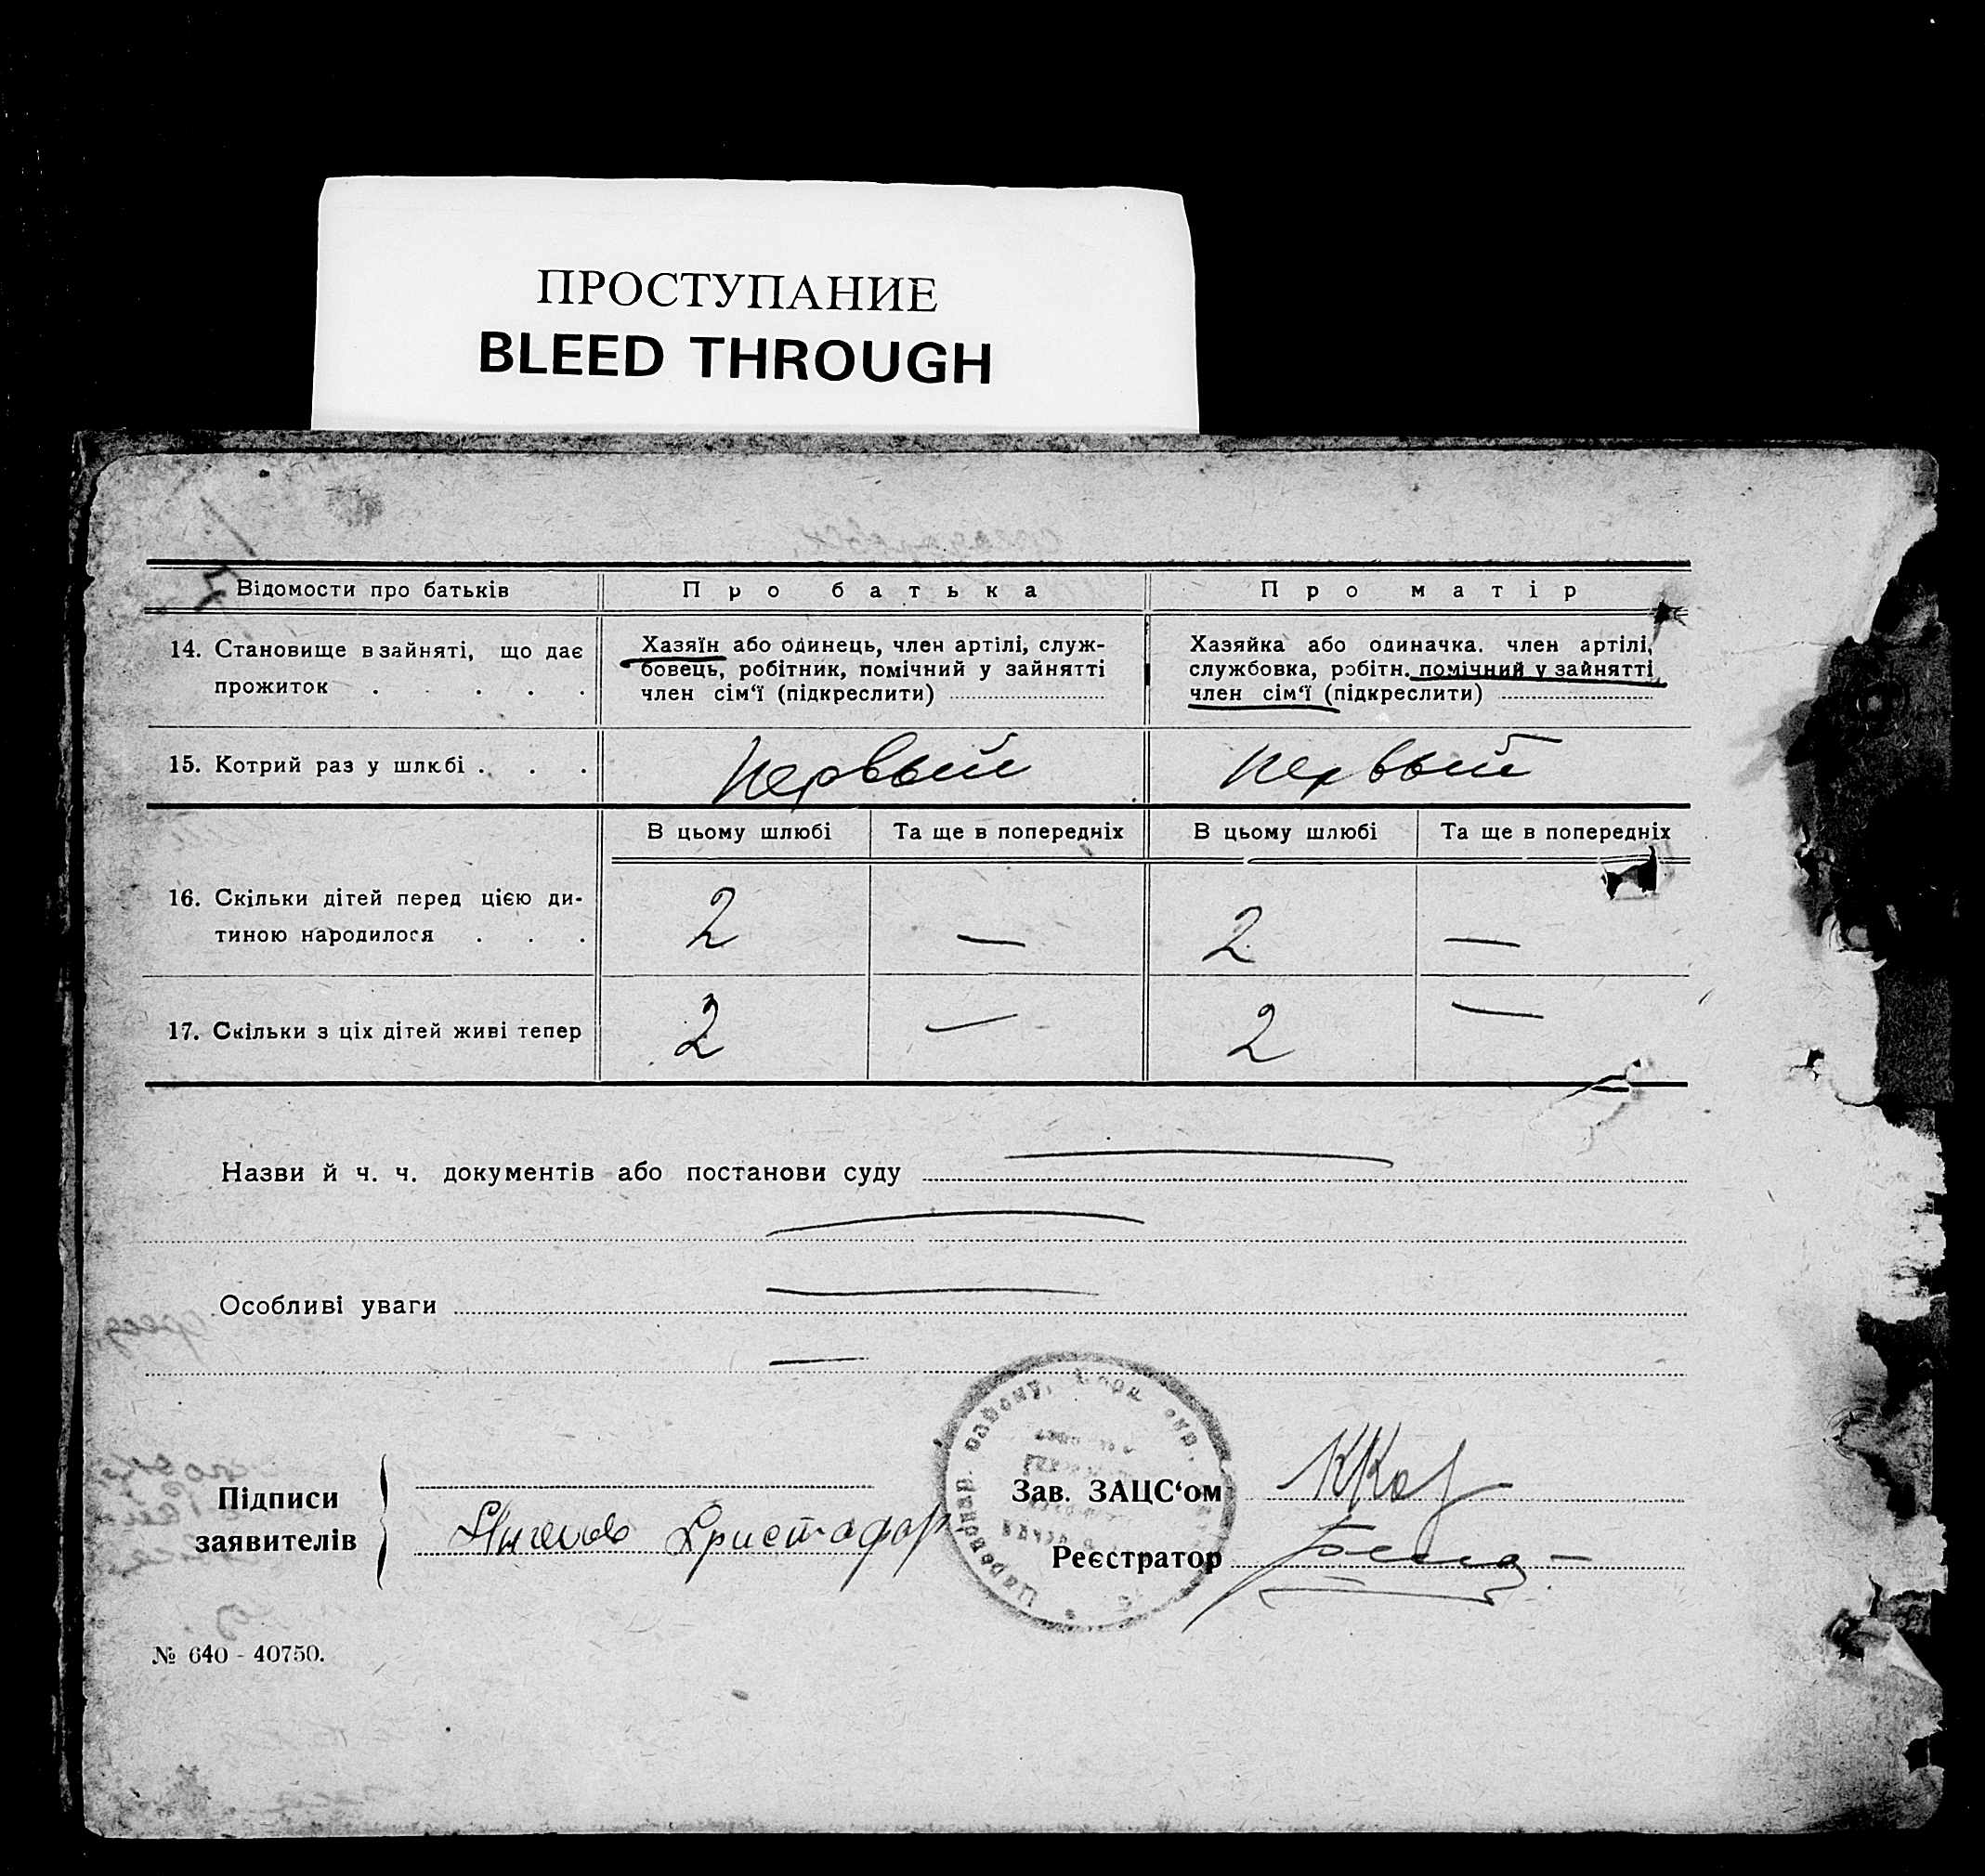 ПРОСТУПАНИЕ
BLEED THROUGH
Відомости про батьків
Про батька
Про матір
14. Становище в зайняті, що дає
прожиток . . . . .
Хазяїн або одинець, член артілі, служ-
бовець, робітник, помічний у зайнятті
член сім‘ї (підкреслити)
Хазяйка або одиначка. член артілі,
службовка, робітн. помічний у зайнятті
член сім‘ї (підкреслити)
15. Котрий раз у шлюбі . . .
первый
первый
В цьому шлюбі
Та ще в попередніх
В цьому шлюбі
Та ще в попередніх
16. Скільки дітей перед цією ди-
тиною народилося . . .
2
—
2
—
17. Скільки з ціх дітей живі тепер
2
—
2
—
Назви й ч. ч. документів або постанови суду
Особливі уваги
Підписи
заявителів
Христофор
Зав. ЗАЦС‘ом
Реєстратор
№ 640 - 40750.